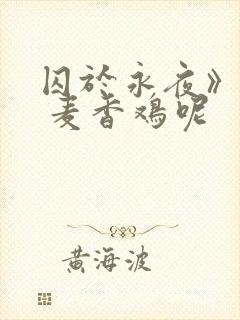 囚於永夜》
麦香鸡呢
黄海波